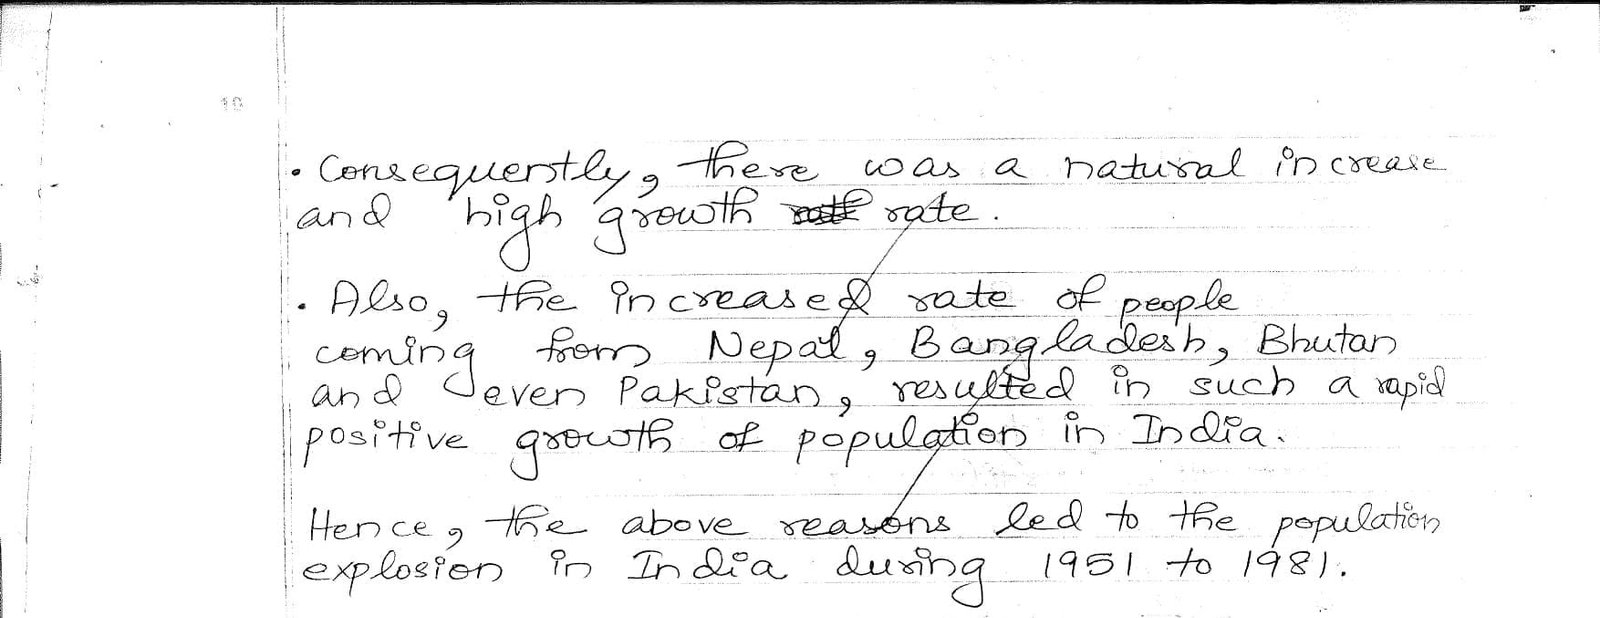 10
. Consequently, there was a natural increase
and high growth rate.
. Also, the increased rate of people
coming from Nepal, Bangladesh, Bhutan
and even Pakistan, resulted in such a rapid
positive growth of population in India.
Hence, the above reasons led to the population
explosion in India during 1951 to 1981.